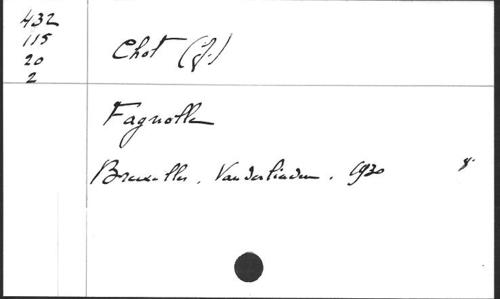 432
115
20
2
Chot (J.)
Fagnolle
Bruxelles. Vanderlinden. 1930 8°